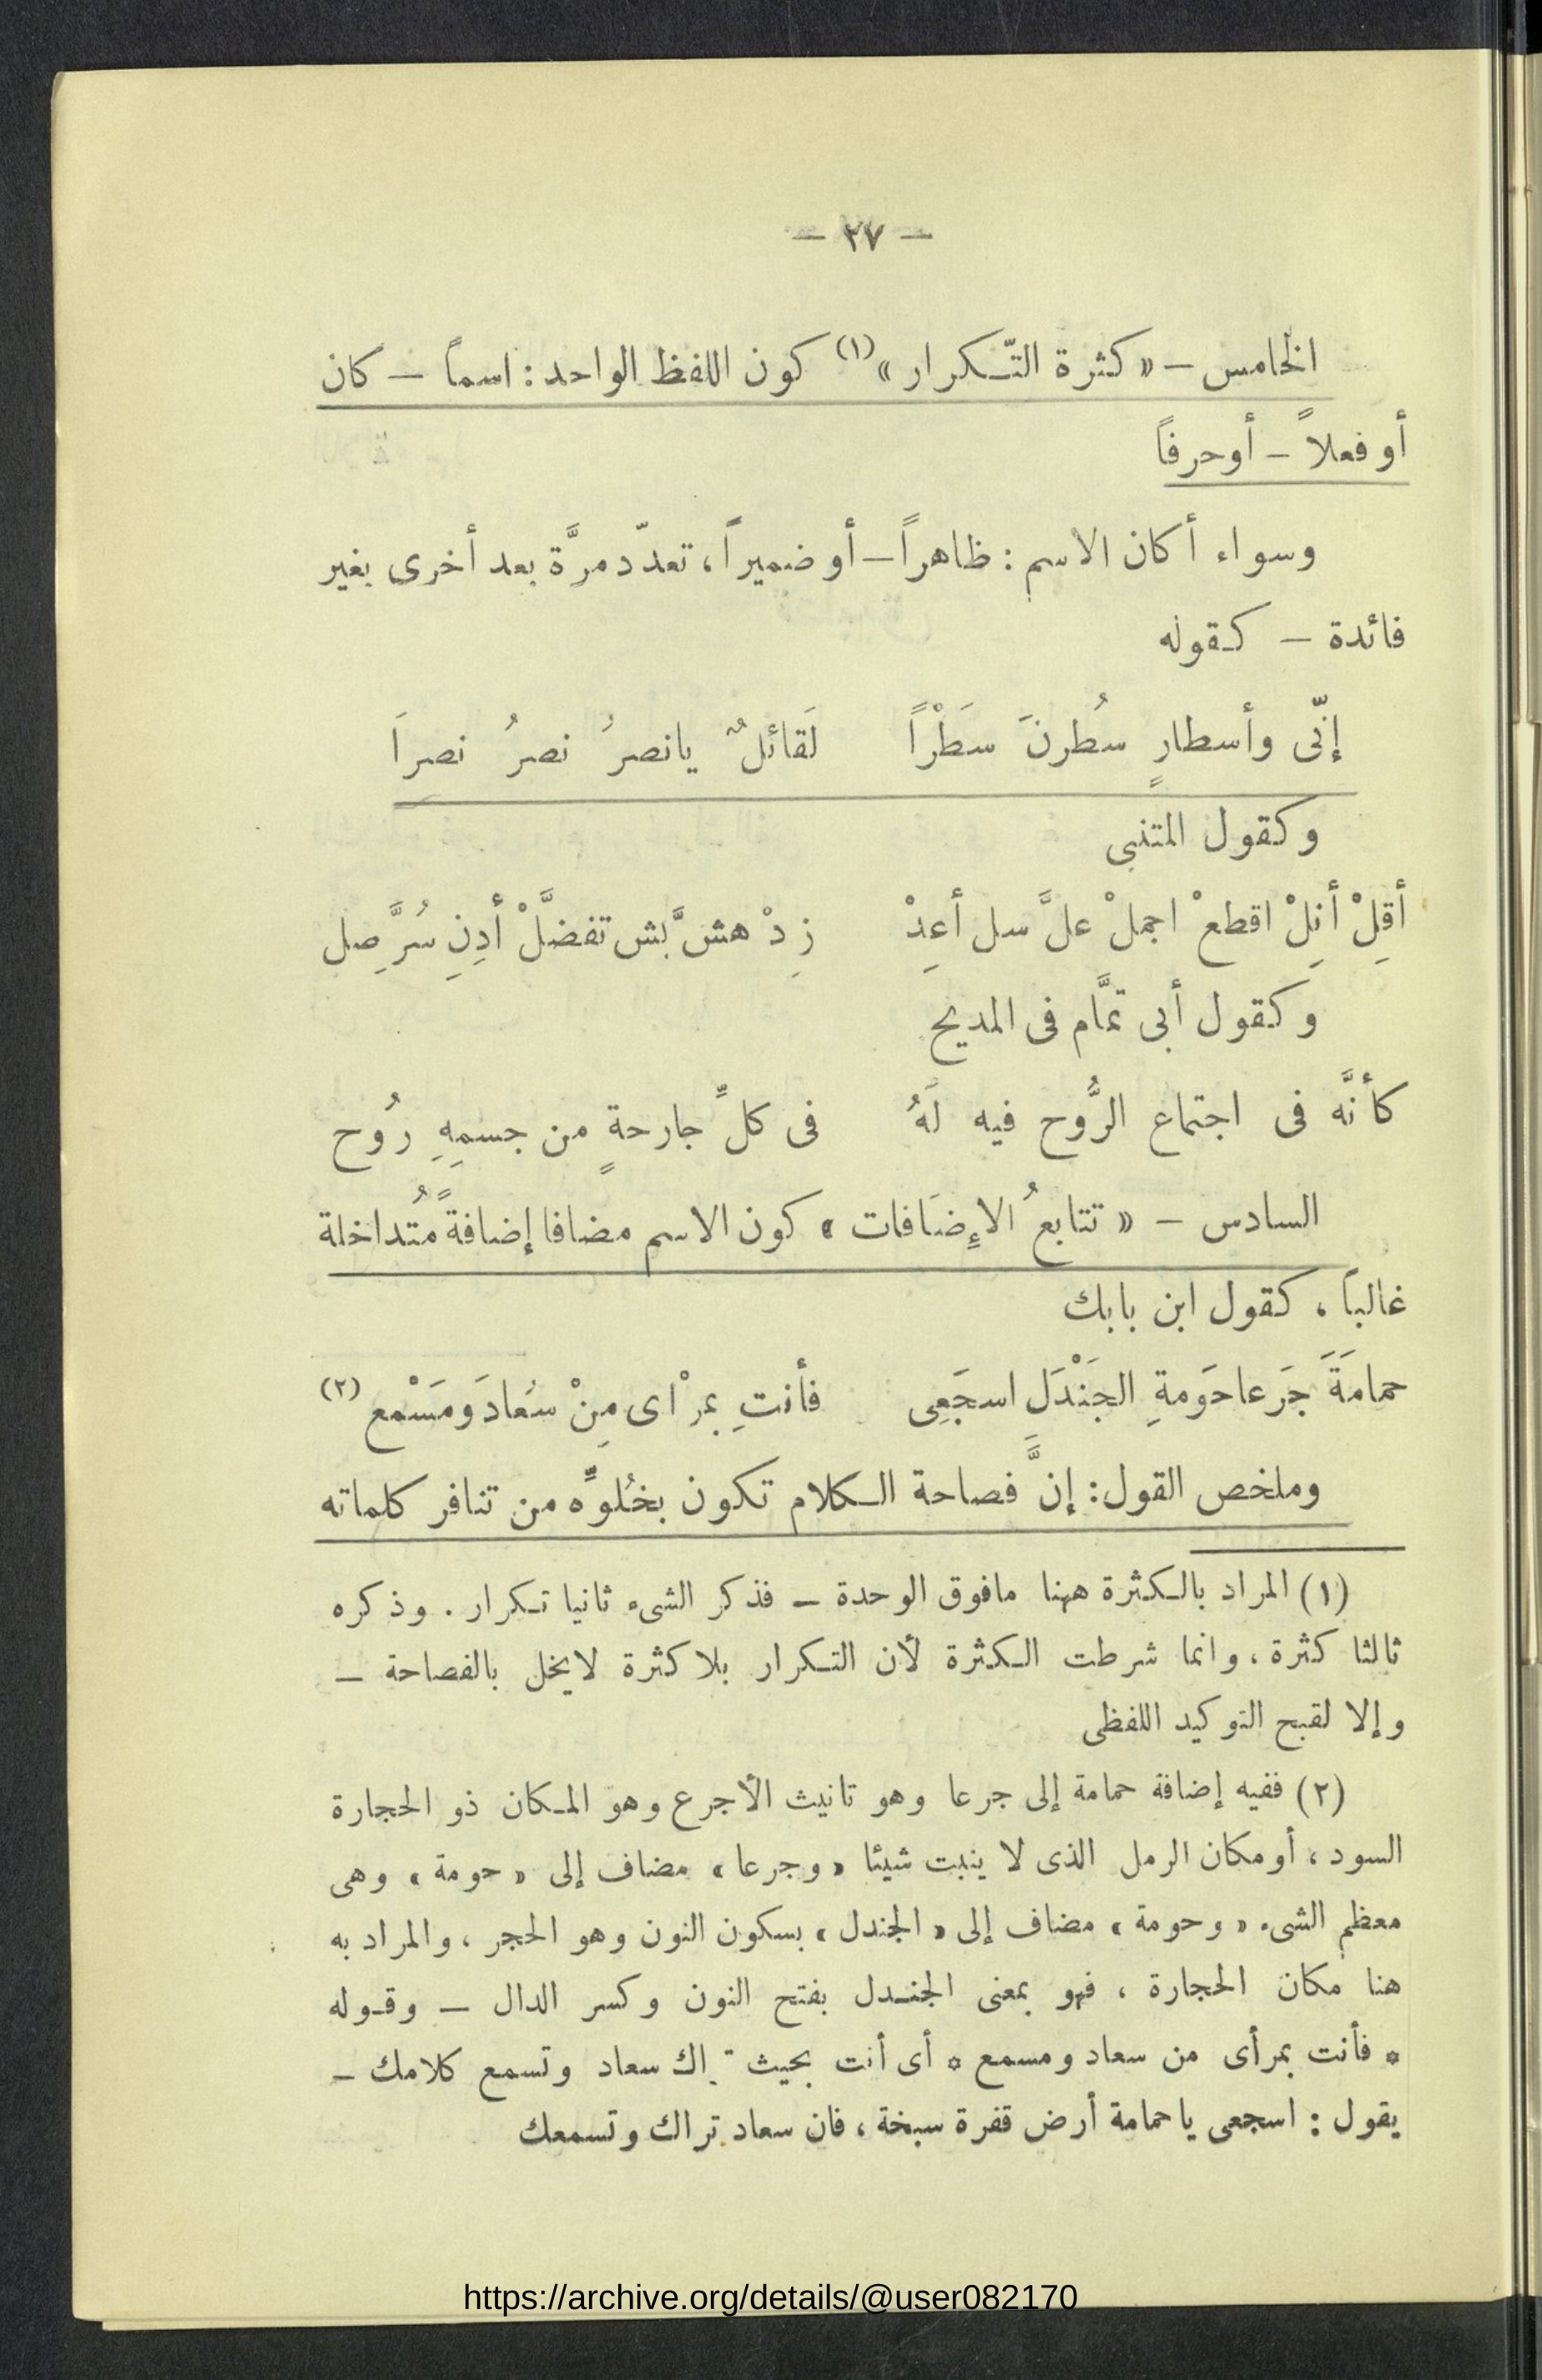 — ٢٧ —
الخامس — « كثرة التّكرار » (١) كون اللفظ الواحد : اسماً — كان
أو فعلاً — أو حرفاً
وسواء أكان الاسم : ظاهراً — أو ضميراً ، تعدّد مرَّة بعد أخرى بغير
فائدة — كقوله
إنّى وأسطارٍ سُطرنَ سَطْراً لَقائلٌ يانصرُ نصرُ نصراَ
وكقول المتنبى
أقِلْ أنِلْ اقطعْ احملْ علَّ سل أعِدْ زِدْ هشَّ بش تفضَّلْ أدِنِ سُرَّ صِل
وكقول أبى تمَّام فى المديح
كأنَّه فى اجتماع الرُّوح فيه لَهُ فى كلِّ جارحةٍ من جسمِهِ رُوح
السادس — « تتابعُ الإِضَافات » كون الاسم مضافا إضافةً مُتداخلة
غالباً ، كقول ابن بابك
حمامَةَ جَرعا حَومةِ الجَنْدَلِ اسجَعِى فأنتِ بمرْاى مِنْ سُعادَ ومَسْمع (٢)
وملخص القول : إنَّ فصاحة الكلام تكون بخُلوِّه من تنافر كلماته
(١) المراد بالكثرة ههنا مافوق الوحدة — فذكر الشىء ثانيا تكرار . وذكره
ثالثا كثرة ، وانما شرطت الكثرة لأن التكرار بلا كثرة لايخل بالفصاحة —
وإلا لقبح التوكيد اللفظى
(٢) ففيه إضافة حمامة إلى جرعا وهو تانيث الأجرع وهو المكان ذو الحجارة
السود ، أو مكان الرمل الذى لا ينبت شيئا « وجرعا » مضاف إلى « حومة » وهى
معظم الشىء « وحومة » مضاف إلى « الجندل » بسكون النون وهو الحجر ، والمراد به
هنا مكان الحجارة ، فهو بمعنى الجندل بفتح النون وكسر الدال — وقوله
* فأنت بمرأى من سعاد ومسمع * أى أنت بحيث تراك سعاد وتسمع كلامك —
يقول : اسجعى ياحمامة أرض قفرة سبخة ، فان سعاد تراك وتسمعك
https://archive.org/details/@user082170